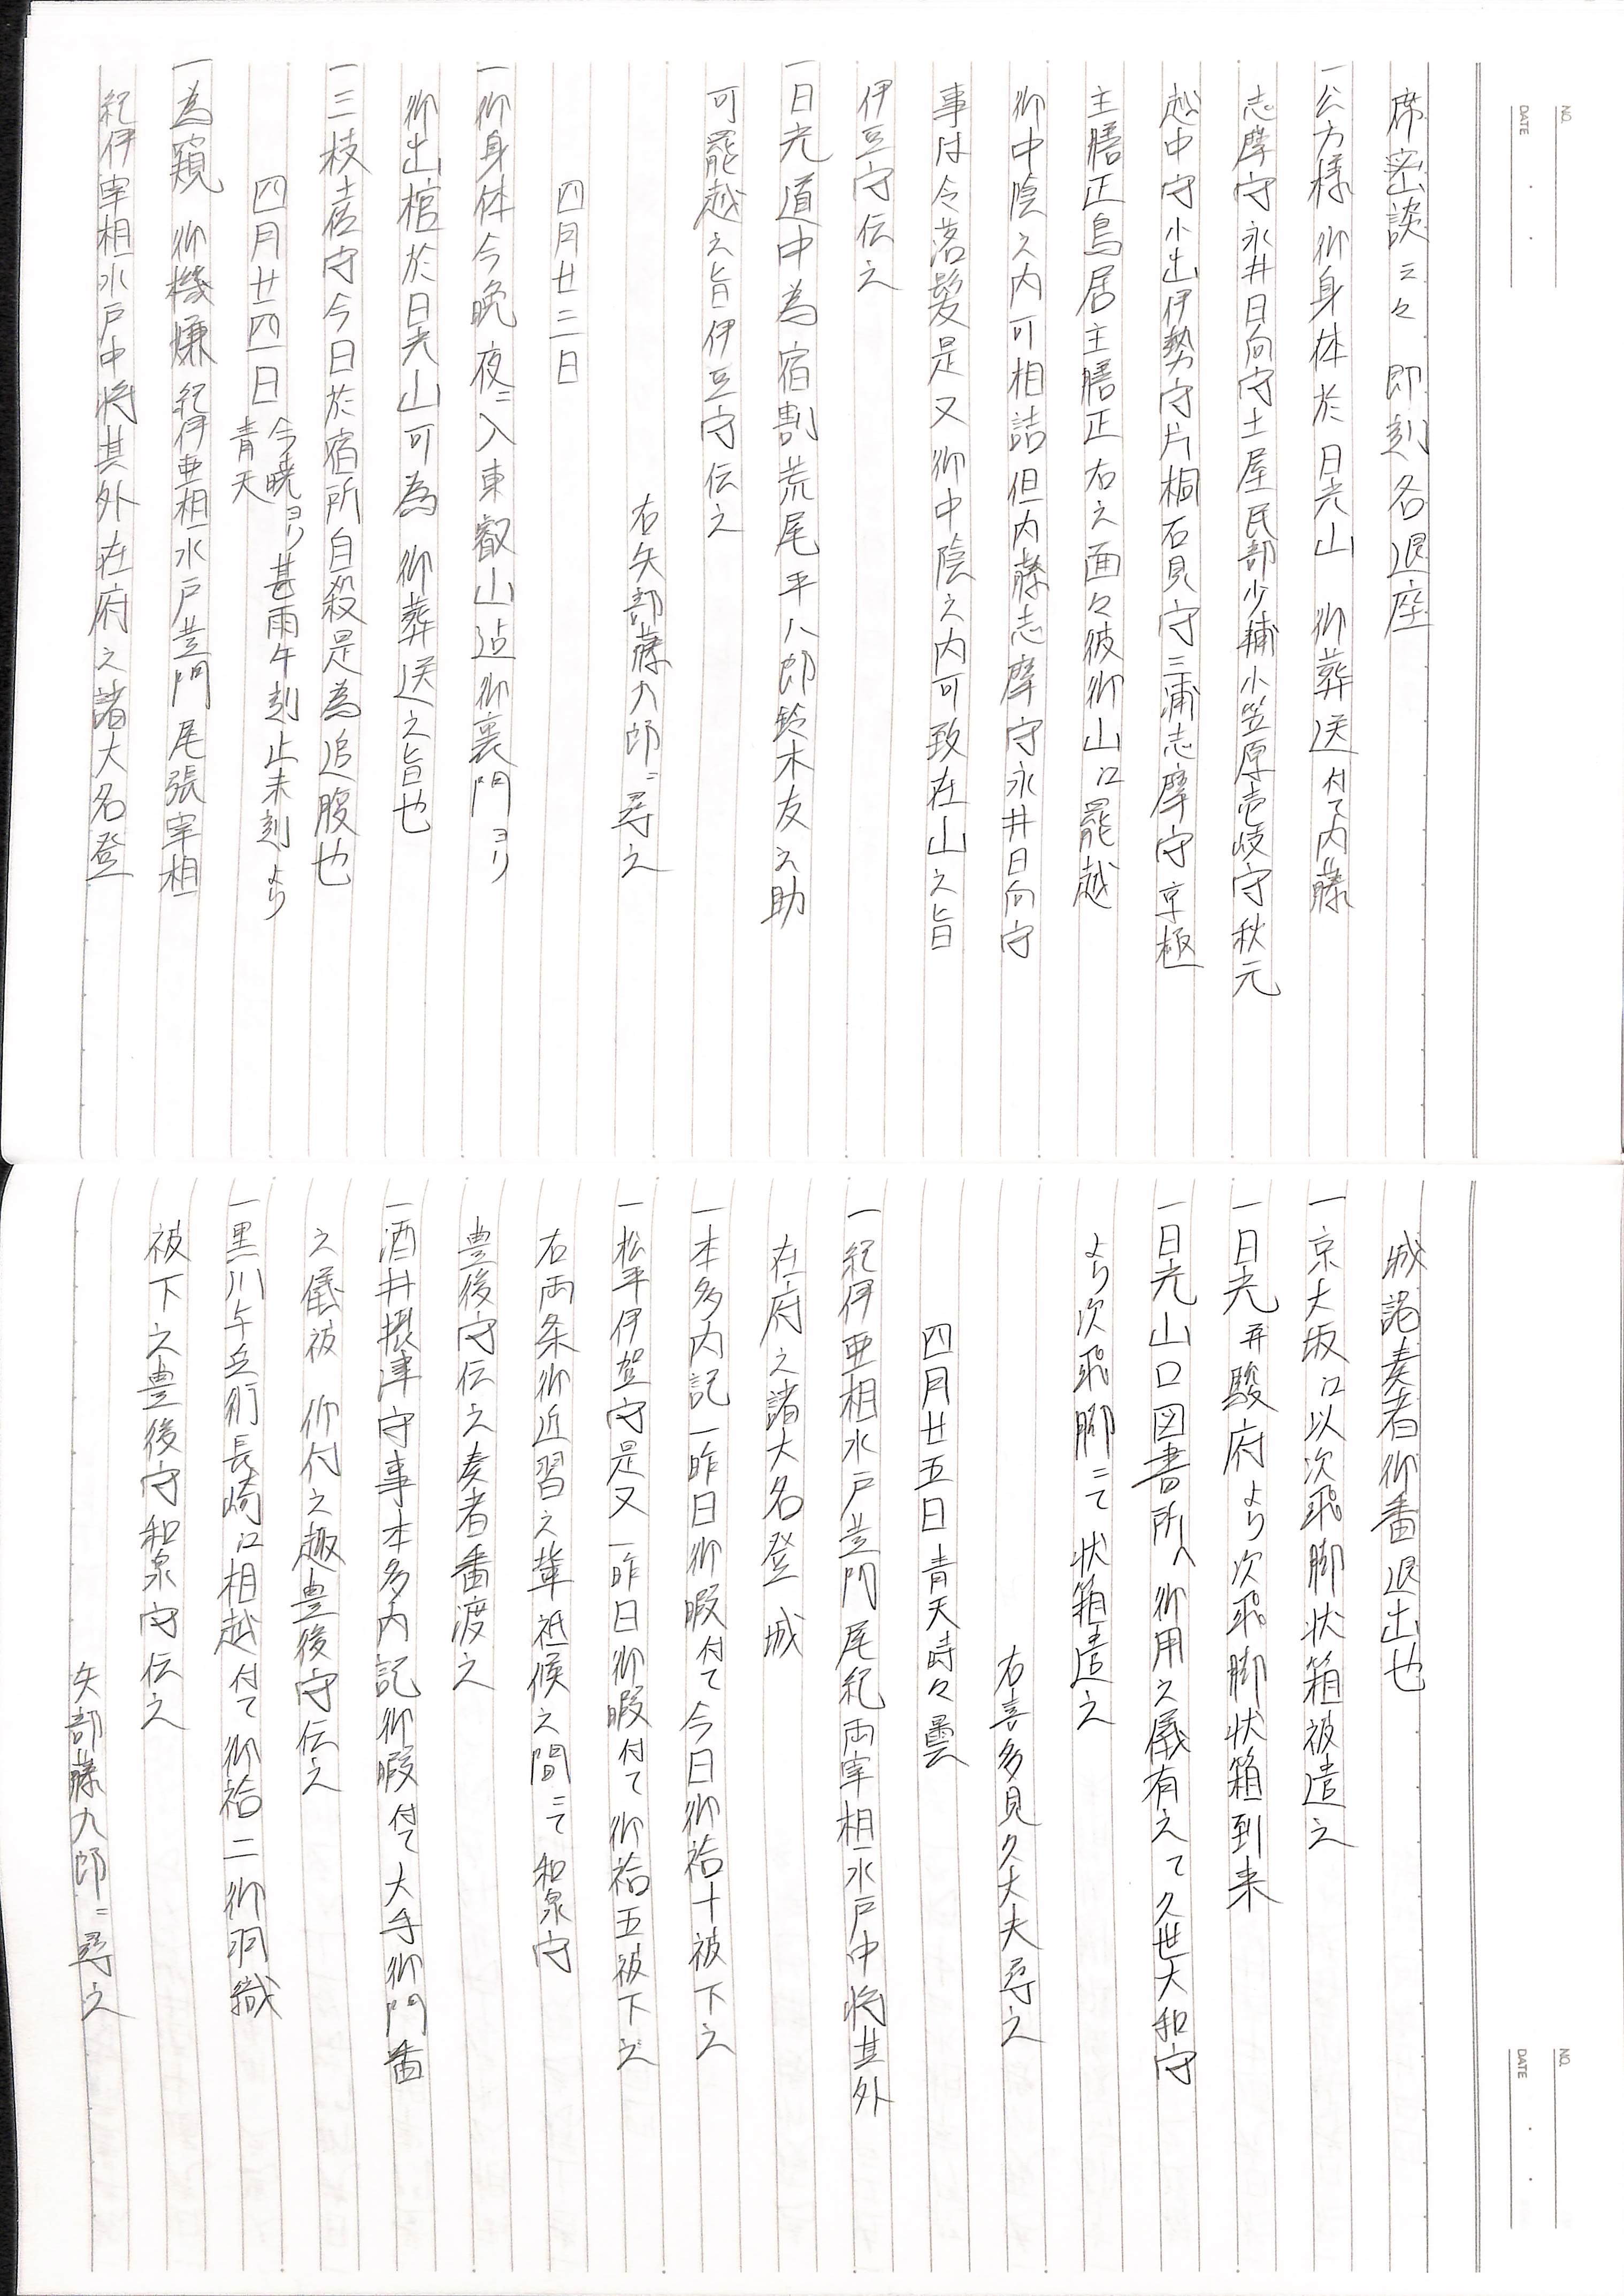 席密談云々 即刻各退座
一公方様 御身体於日光山 御葬送付て内藤
志摩守永井日向守土屋民部少輔小笠原壱岐守秋元
越中守小出伊勢守片桐石見守三浦志摩守京極
主膳正鳥居主膳正右之面々彼御山江罷越
御中陰之内可相詰但内藤志摩守永井日向守
事は令落髪是又御中陰之内可致在山之旨
伊豆守伝之
一日光道中為宿割荒尾平八郎鈴木友之助
可罷越之旨伊豆守伝之
右矢部藤九郎ニ尋之
四月廿三日
一御身体今晩夜ニ入東叡山迠御裏門ヨリ
御出棺於日光山可為 御葬送之旨也
一三枝土佐守今日於宿所自殺是為追腹也
四月廿四日 今暁ヨリ甚雨午刻止未刻より
青天
一為窺 御機嫌紀伊亜相水戸黄門尾張宰相
紀伊宰相水戸中将其外在府之諸大名登
城謁奏者御番退出也
一京大坂江以次飛脚状箱被遣之
一日光并駿府より次飛脚状箱到来
一日光山口図書所へ御用之儀有之て久世大和守
より次飛脚ニて状箱遣之
右喜多見久大夫尋之
四月廿五日青天時々曇
一紀伊亜相水戸黄門尾紀両宰相水戸中将其外
在府之諸大名登城
一本多内記一昨日御暇付て今日御袷十被下之
一松平伊賀守是又一昨日御暇付て御袷五被下之
右両条御近習之輩祗候之間ニて和泉守
豊後守伝之奏者番渡之
一酒井摂津守事本多内記御暇付て大手御門番
之儀被 仰付之趣豊後守伝之
一黒川与兵衛長崎江相越付て御袷二御羽織
被下之豊後守和泉守伝之
矢部藤九郎ニ尋之
NO.
DATE
NO.
DATE